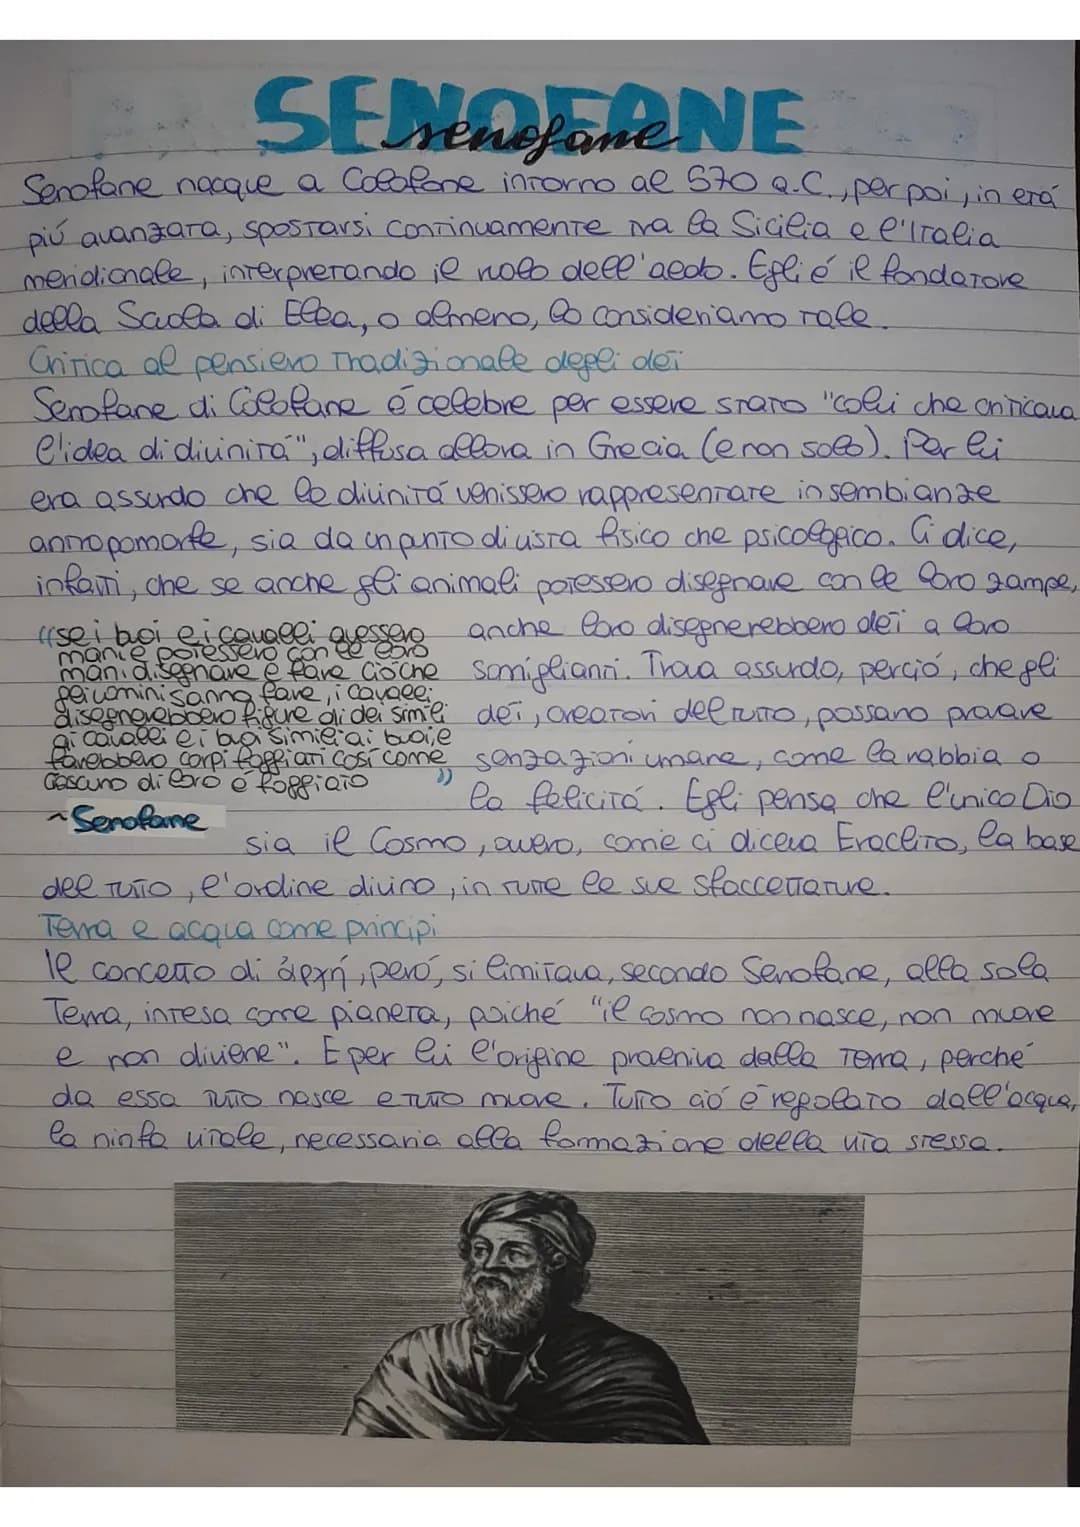 SENOFANE
senofane
Senofane nacque a Colofone intorno al 570 a.C., per poi, in etá
piú avanzata, spostarsi continuamente tra la Sicilia e l'Italia
meridionale, interpretando il ruolo dell'aedo. Egli é il fondatore
della Scuola di Elea, o almeno, lo consideriamo tale.
Critica al pensiero tradizionale degli dèi
Senofane di Colofane é celebre per essere stato "colui che criticava
l'idea di divinitá", diffusa allora in Grecia (e non solo). Per lui
era assurdo che le divinitá venissero rappresentate in sembianze
antropomorfe, sia da un punto di vista fisico che psicologico. Ci dice,
infatti, che se anche gli animali potessero disegnare con le loro zampe,
anche loro disegnerebbero dèi a loro
somiglianti. Trova assurdo, perció, che gli
dèi, creatori del tutto, possano provare
senzazioni umane, come la rabbia o
la felicitá. Egli pensa che l'unico Dio
sia il Cosmo, ovvero, come ci diceva Eraclito, la base
del tutto, l'ordine divino, in tutte le sue sfaccettature.
«se i buoi e i cavalli avessero
mani e potessero con le loro
mani disegnare e fare ció che
gli uomini sanno fare, i cavalli
disegnerebbero figure di dei simili
ai cavalli e i buoi simili ai buoi, e
farebbero corpi foggiati cosí come
ciascuno di loro é foggiato »
~ Senofane
Terra e acqua come principi
Il concetto di ἀρχή, peró, si limitava, secondo Senofane, alla sola
Terra, intesa come pianeta, poiché "il cosmo non nasce, non muore
e non diviene". E per lui l'origine proeniva dalla Terra, perché
da essa tutto nasce e tutto muore. Tutto ció é regolato dall'acqua,
la ninfa vitale, necessaria alla formazione della vita stessa.